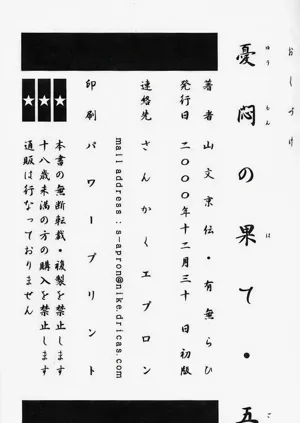 おしづけ
憂悶の果て・五
ゆうもん　は　ご
著者　山文京伝・有無らひ
発行日　二〇〇〇年十二月三十日　初版
連絡先　さんかくエプロン
mail address : s-apron@nike.dricas.com
印刷　パワープリント
本書の無断転載・複製を禁止します
十八歳未満の方の購入を禁止します
通販は行なっておりません